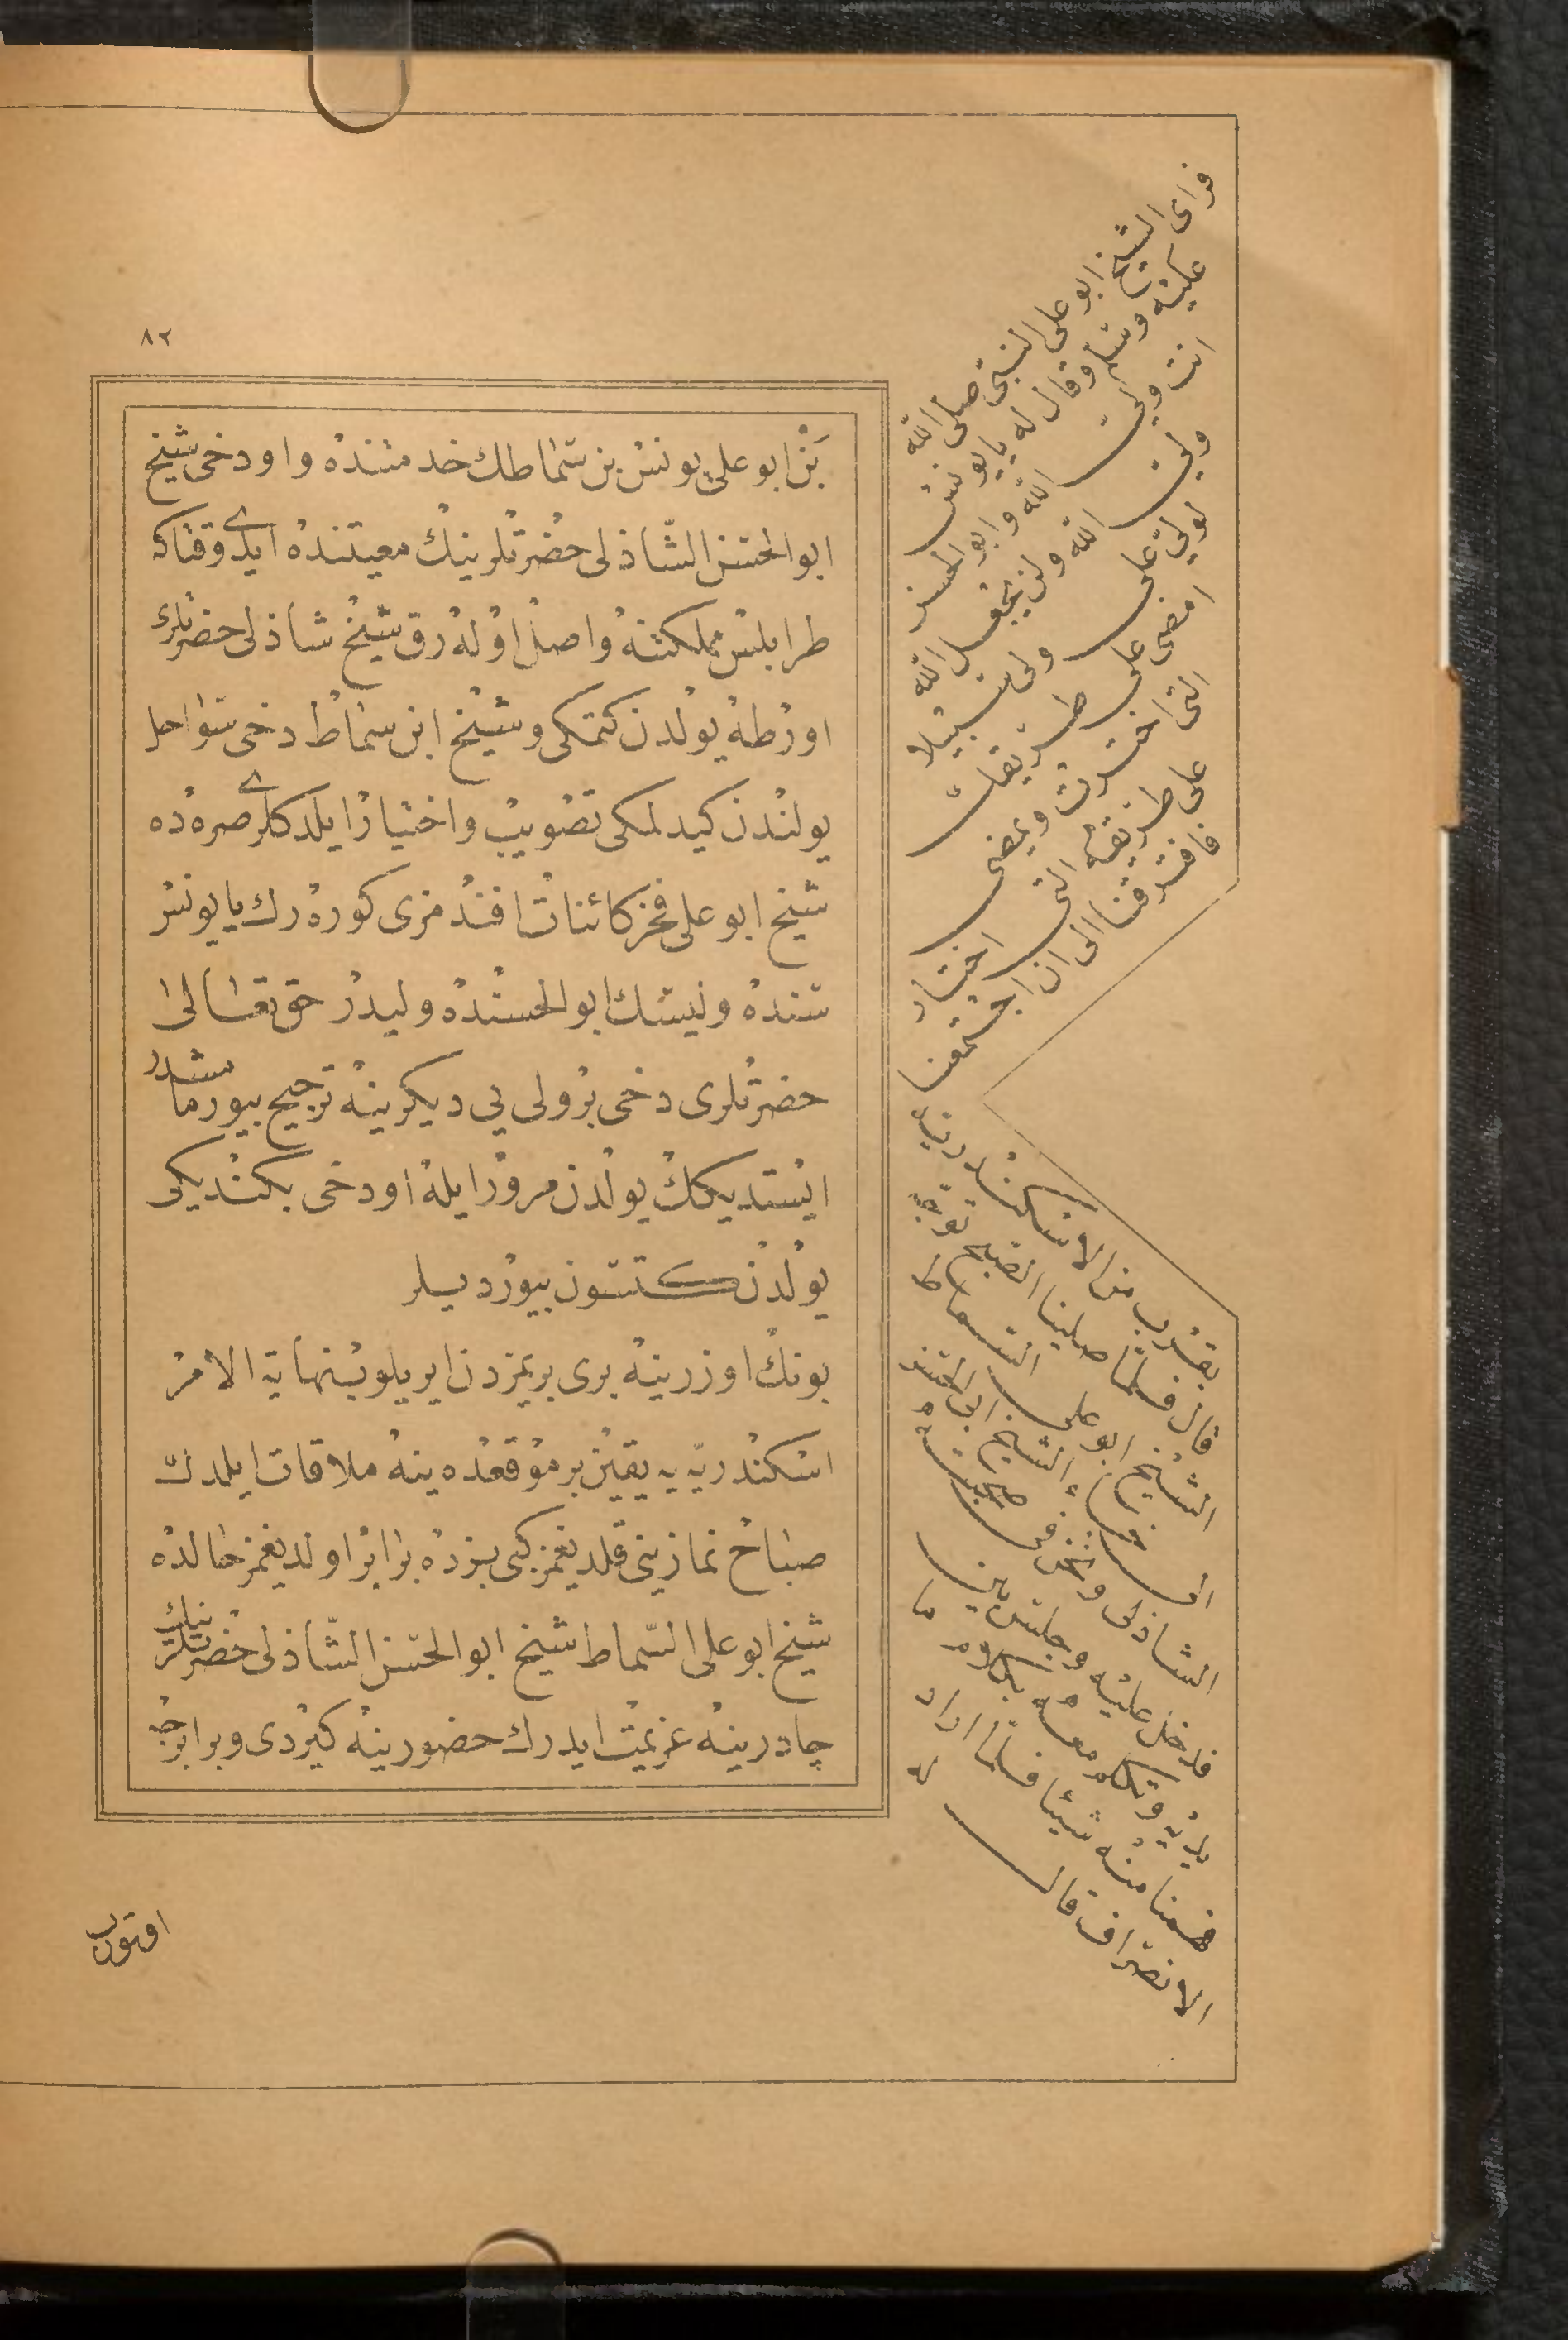 ٨٢
بن ابو علي يونس بن سماطك خدمتنده و او دخى شيخ
ابو الحسن الشاذلى حضرتلرينك معيتنده ايدى وقتاكه
طرابلس مملكتنه واصل اوله رق شيخ شاذلى حضرتلرى
اورطه يولدن كتمكى و شيخ ابن سماط دخى سواحل
يولندن كيدلمكى تصويب و اختيار ايلدكلرى صره ده
شيخ ابو على فخر كائنات افندمزى كوره رك يا يونس
سنده وليسك ابو الحسنده وليدر حق تعالى
حضرتلرى دخى بر ولى يي ديكرينه ترجيح بيورمامشدر
ايستديكك يولدن مرور ايله او دخى بكنديكى
يولدن كتسون بيورديلر
بونك اوزرينه برى بريمزدن ايريلوب نهاية الامر
اسكندريه يه يقين بر موقعده ينه ملاقات ايلدك
صباح نمازينى قلديغمز كبى بزده برابر اولديغمز حالده
شيخ ابو على السماط شيخ ابو الحسن الشاذلى حضرتلرينك
چادرينه عزيمت ايدرك حضورينه كيردى و برابرجه
اوتوروب
فراى الشيخ ابو على النبى صلى الله
عليه وسلم وقال له يا يونس
انت ولى الله وابو الحسن
ولى الله ولن يجعل الله
لولى على ولى سبيلا
امضى على طريقك
التى اخترت ويمضى
على طريقه التى اختار
فافترقنا الى ان اجتمعنا
بقرب من الاسكندرية
قال فلما صلينا الصبح توجه
الشيخ ابو على السماط
الى خباء الشيخ ابى الحسن
الشاذلى ونحن فى صحبته
فدخل عليه وجلس بين
يديه وتكلم معه بكلام ما
فهمنا منه شيئا فلما اراد
الانصراف قال له